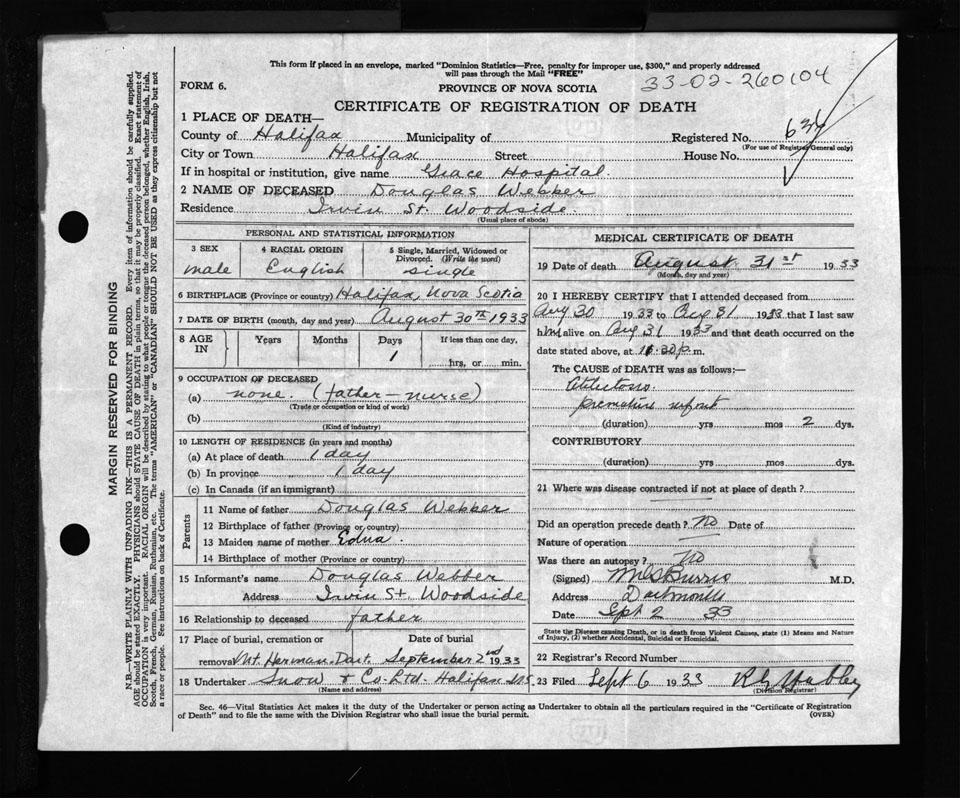 This form if placed in an envelope, marked "Dominion Statistics—Free, penalty for improper use, $300," and properly addressed
will pass through the Mail "FREE"
33-02-260104
FORM 6.
PROVINCE OF NOVA SCOTIA
CERTIFICATE OF REGISTRATION OF DEATH
1 PLACE OF DEATH—
County of Halifax Municipality of Registered No.
(For use of Registrar General only)
City or Town Halifax Street House No.
If in hospital or institution, give name Grace Hospital.
2 NAME OF DECEASED Douglas Webber
Residence Irvin St. Woodside.
(Usual place of abode)
PERSONAL AND STATISTICAL INFORMATION
3 SEX 4 RACIAL ORIGIN 5 Single, Married, Widowed or Divorced. (Write the word)
male English single
6 BIRTHPLACE (Province or country) Halifax, Nova Scotia
7 DATE OF BIRTH (month, day and year) August 30th 1933
8 AGE IN Years Months Days If less than one day,
1
hrs, or min.
9 OCCUPATION OF DECEASED
(a) none. (father - nurse)
(Trade or occupation or kind of work)
(b)
(Kind of industry)
10 LENGTH OF RESIDENCE (in years and months)
(a) At place of death 1 day
(b) In province 1 day
(c) In Canada (if an immigrant)
Parents
11 Name of father Douglas Webber
12 Birthplace of father (Province or country)
13 Maiden name of mother Edna.
14 Birthplace of mother (Province or country)
15 Informant's name Douglas Webber
Address Irvin St. Woodside
16 Relationship to deceased father
17 Place of burial, cremation or Date of burial
removal Mt. Herman. Dart. September 2nd 1933
18 Undertaker Snow & Co. Ltd. Halifax N.S.
(Name and address)
MEDICAL CERTIFICATE OF DEATH
19 Date of death August 31st 1933
(Month, day and year)
20 I HEREBY CERTIFY that I attended deceased from
Aug 30 1933 to Aug 31 1933 that I last saw
him alive on Aug 31 1933 and that death occurred on
date stated above, at p.m.
The CAUSE of DEATH was as follows:—
premature infant
(duration) yrs mos 2 dys.
CONTRIBUTORY
(duration) yrs mos dys.
21 Where was disease contracted if not at place of death?
Did an operation precede death? No Date of
Nature of operation
Was there an autopsy? No
(Signed) Burris M.D.
Address Dartmouth
Date Sept 2 33
State the Disease causing Death, or in death from Violent Causes, state (1) Means and Nature
of Injury, (2) whether Accidental, Suicidal or Homicidal.
22 Registrar's Record Number
23 Filed Sept 6 1933
(Division Registrar)
Sec. 46—Vital Statistics Act makes it the duty of the Undertaker or person acting as Undertaker to obtain all the particulars required in the "Certificate of Registration
of Death" and to file the same with the Division Registrar who shall issue the burial permit.
(OVER)
MARGIN RESERVED FOR BINDING
N.B.—WRITE PLAINLY WITH UNFADING INK—THIS IS A PERMANENT RECORD. Every item of information should be carefully supplied.
AGE should be stated EXACTLY. PHYSICIANS should STATE CAUSE OF DEATH in plain terms, so that it may be properly classified. Exact statement of
OCCUPATION is very important. RACIAL ORIGIN will be described by stating to what people or tongue the deceased person belonged, whether English, Irish,
Scotch, French, German, Russian, Ruthenian, etc. The terms "AMERICAN" or "CANADIAN" SHOULD NOT BE USED as they express citizenship but not
a race or people. See instructions on back of Certificate.